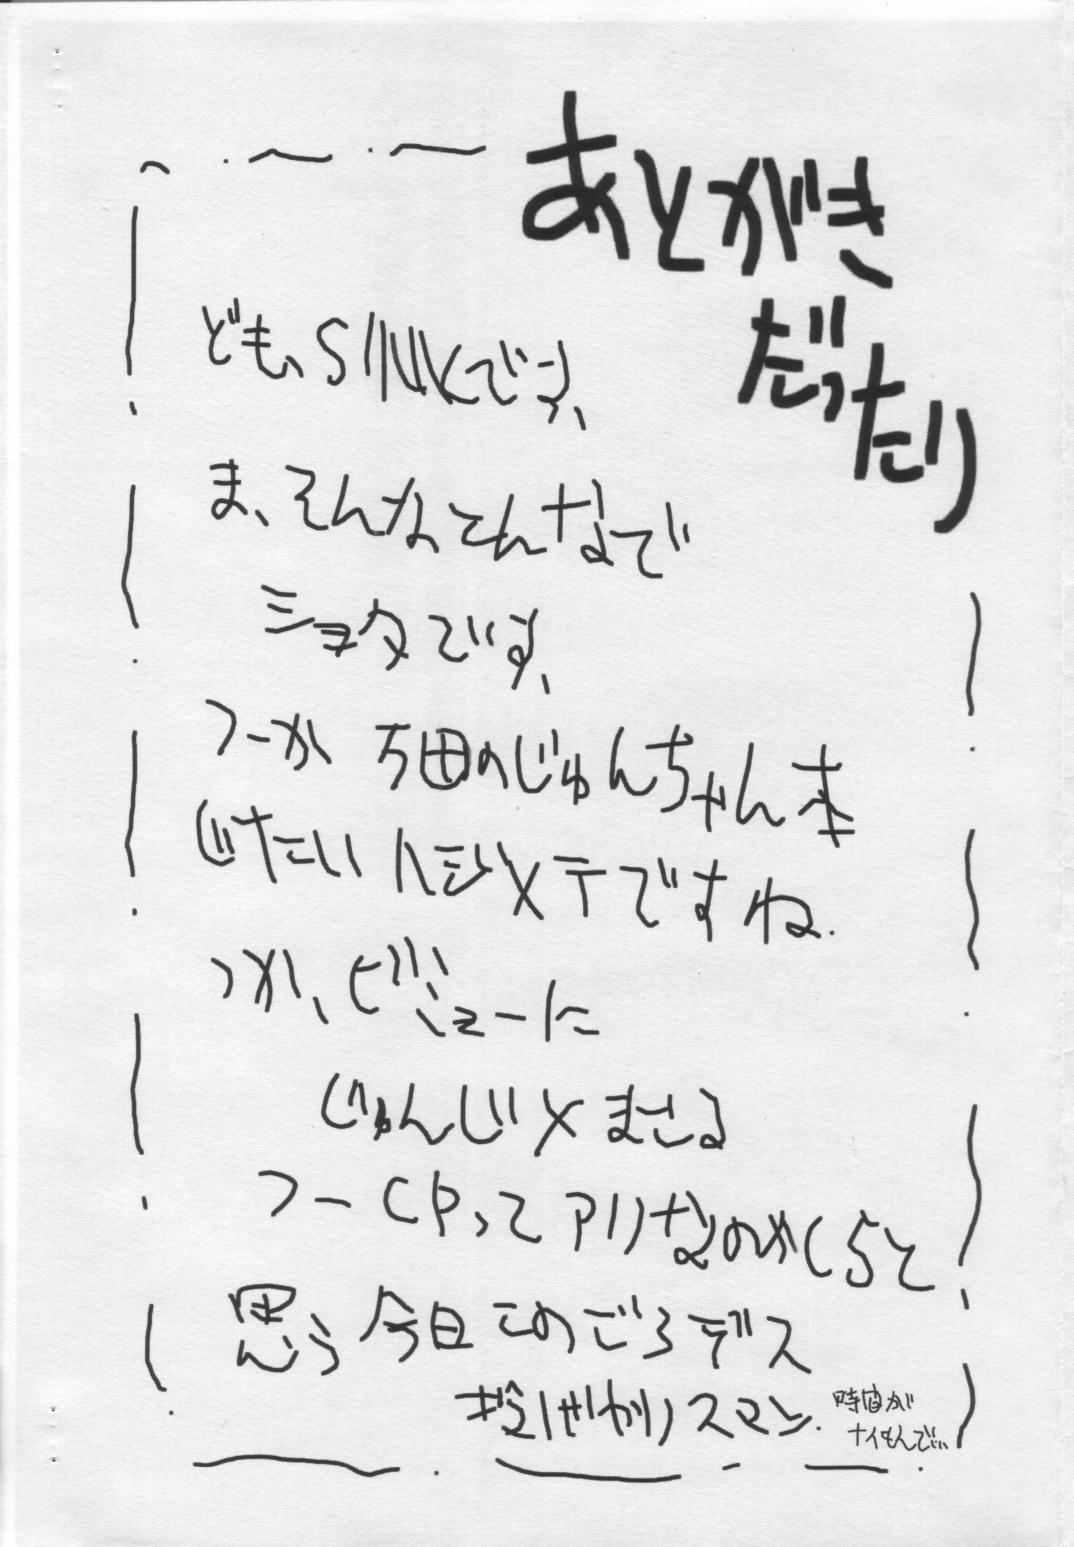 あとがき
だったり
ども、SINKです、
ま、そんなこんなで
ショタです、
つーか 万田のじゅんちゃん本
じたい ハジメテですね.
つか、ビミョーに
じゅんじ×まさる
つーCPってアリなのかしらと
思う今日このごろデス
スマン.
時間が
ナイもんで…